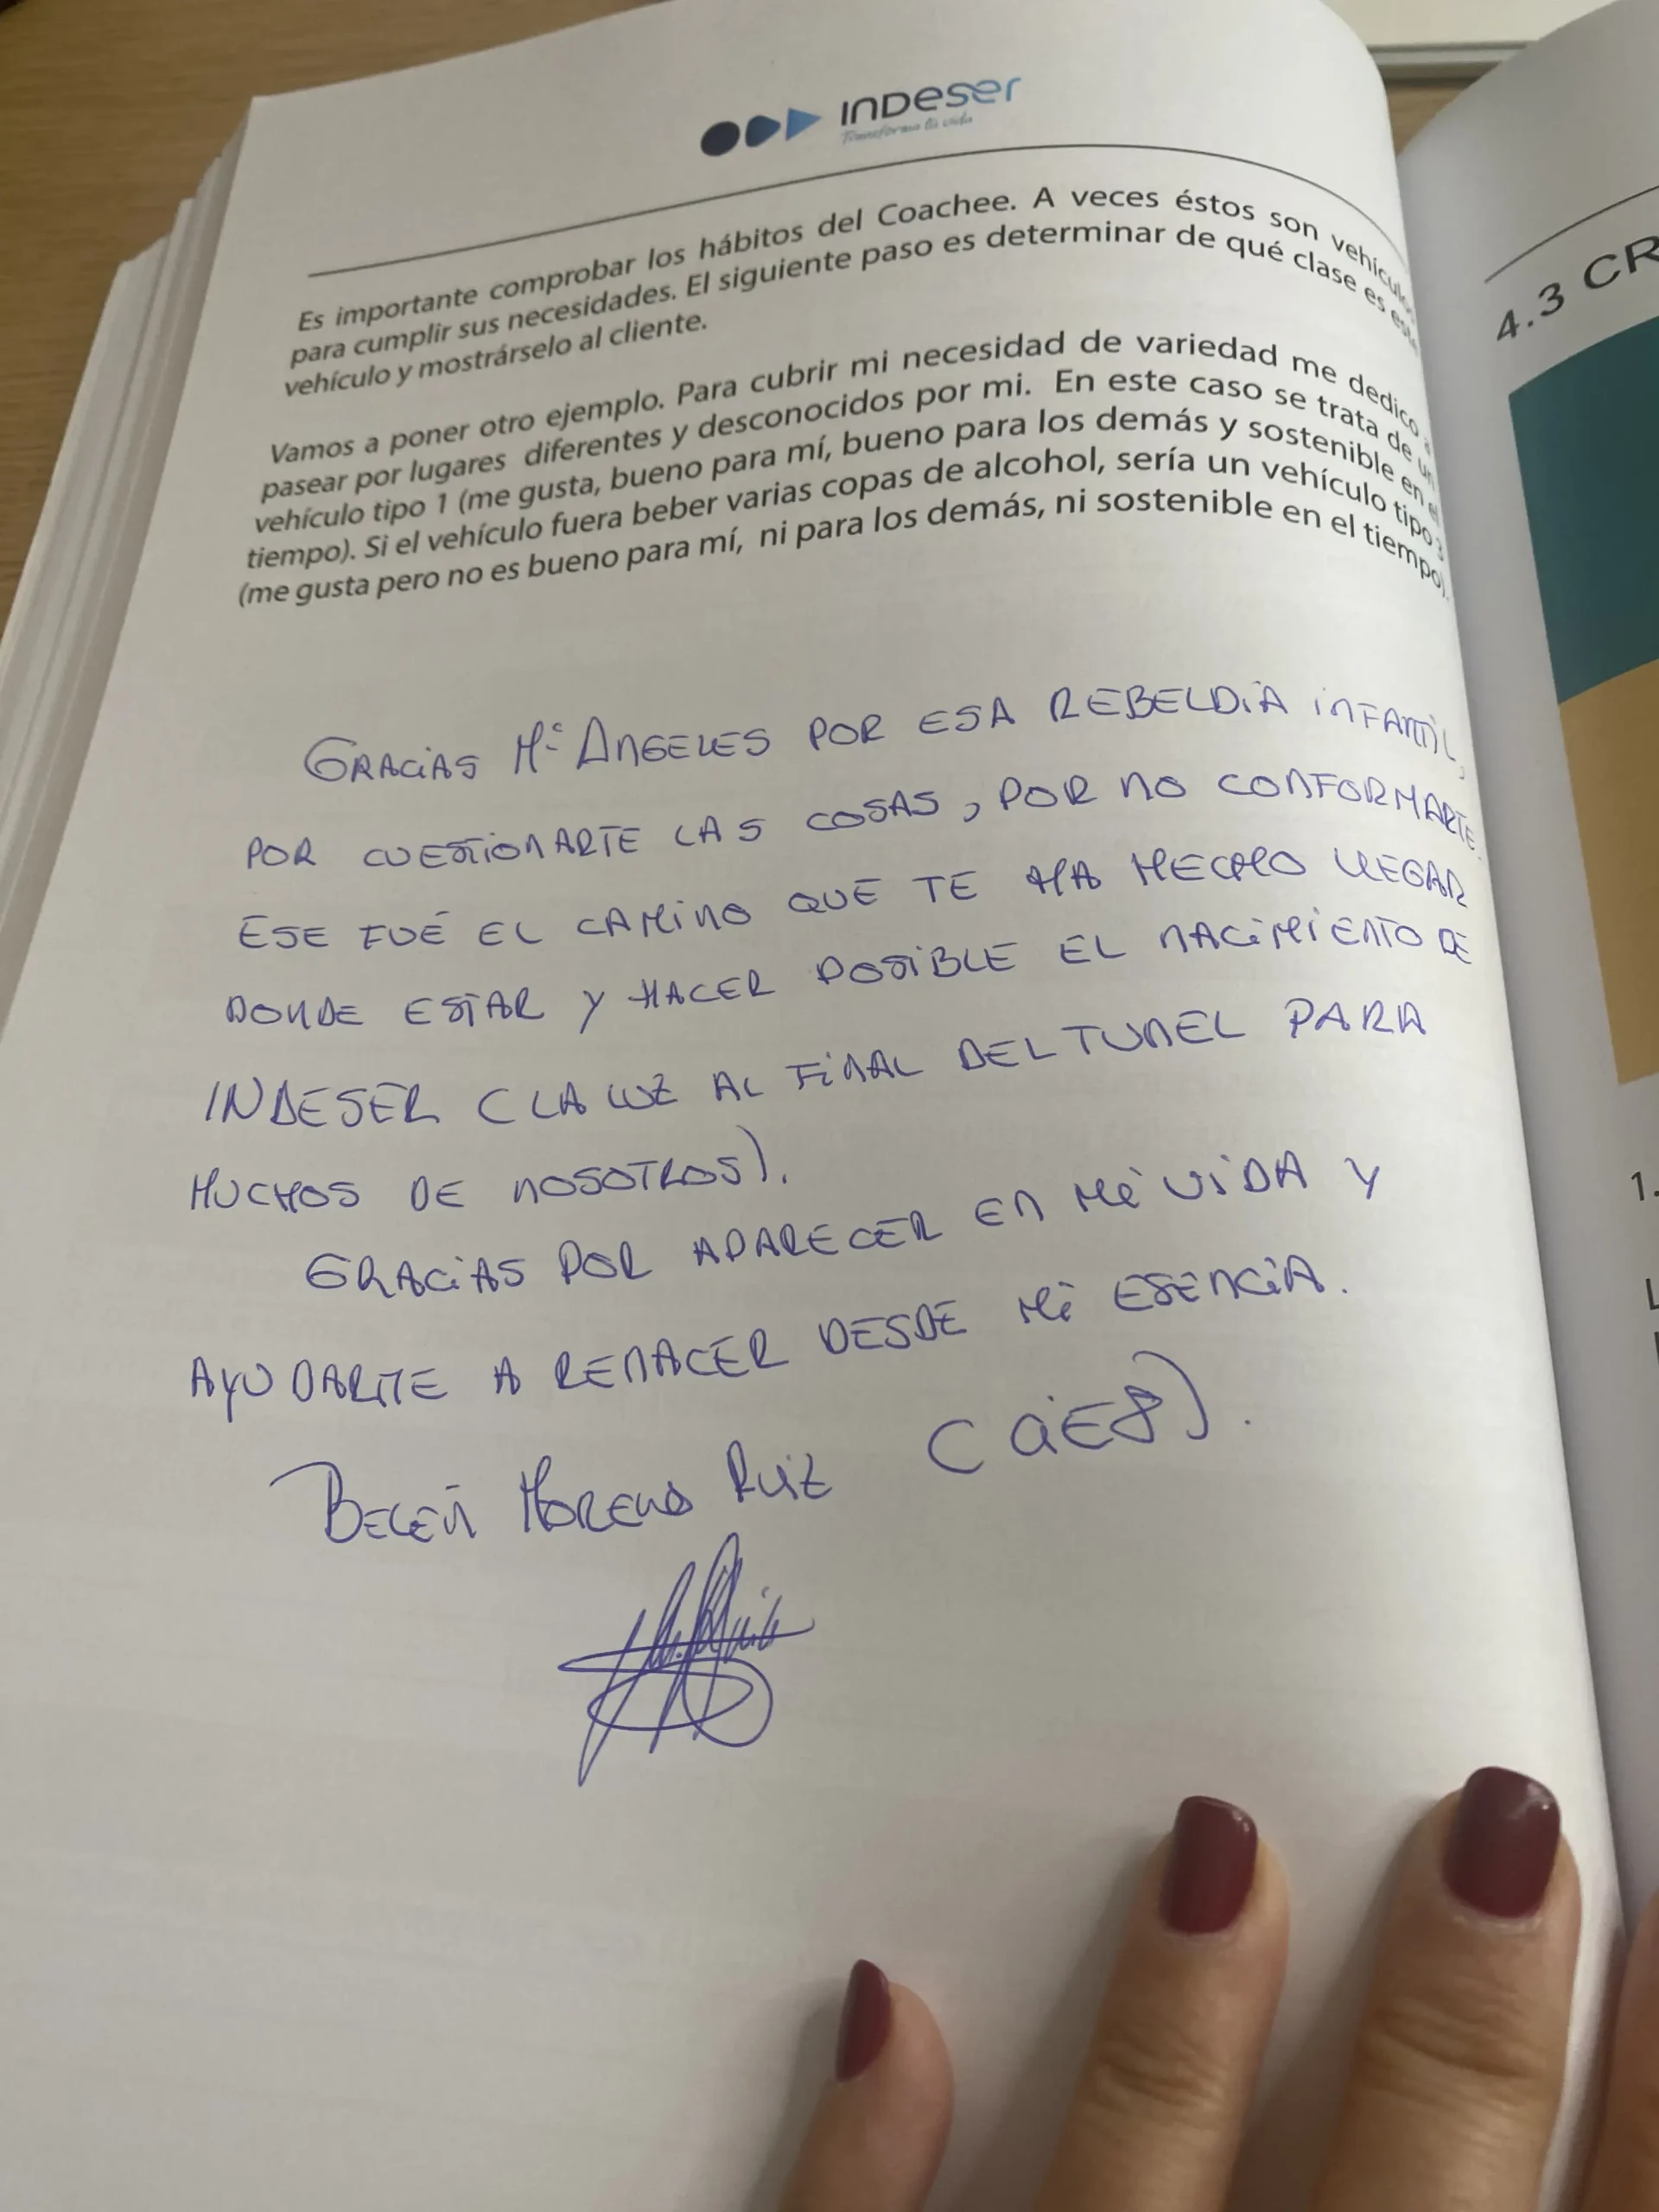 INDeser
Transforma tu vida
Es importante comprobar los hábitos del Coachee. A veces éstos son vehículos
para cumplir sus necesidades. El siguiente paso es determinar de qué clase es este
vehículo y mostrárselo al cliente.
Vamos a poner otro ejemplo. Para cubrir mi necesidad de variedad me dedico a
pasear por lugares diferentes y desconocidos por mi. En este caso se trata de un
vehículo tipo 1 (me gusta, bueno para mí, bueno para los demás y sostenible en el
tiempo). Si el vehículo fuera beber varias copas de alcohol, sería un vehículo tipo 3
(me gusta pero no es bueno para mí, ni para los demás, ni sostenible en el tiempo).
GRACIAS Mª ANGELES POR ESA REBELDIA INFANTIL,
POR CUESTIONARTE LAS COSAS, POR NO CONFORMARTE.
ESE FUÉ EL CAMINO QUE TE HA HECHO LLEGAR
DONDE ESTAR Y HACER POSIBLE EL NACIMIENTO DE
INDESER (LA LUZ AL FINAL DEL TUNEL PARA
MUCHOS DE NOSOTROS).
GRACIAS POR APARECER EN MI VIDA Y
AYUDARME A RENACER DESDE MI ESENCIA.
BELÉN MORENO RUIZ (CIE8).
4.3 CR
1.